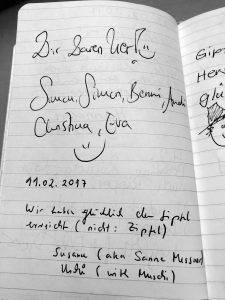 Wir waren hier!
Simon, Simon, Benni, Andi
Christina, Eva
11.02.2017
Wir haben glücklich den Gipfel
erreicht (nicht: Zipfel)
Susanne (aka Sanne
(with Muschi)
Gipf
Her
glü